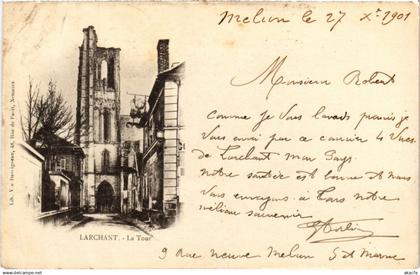 Melun le 27 Xbre 1901
Monsieur Robert
Comme je vous l'avais promis je
vous envoi par ce courrier 4 vues
de Larchant mon Pays
notre santée est bonne et nous
vous envoyons a tous notre
meilieu souvenir
9 Rue neuve Melun S et Marne
LARCHANT. - La Tour